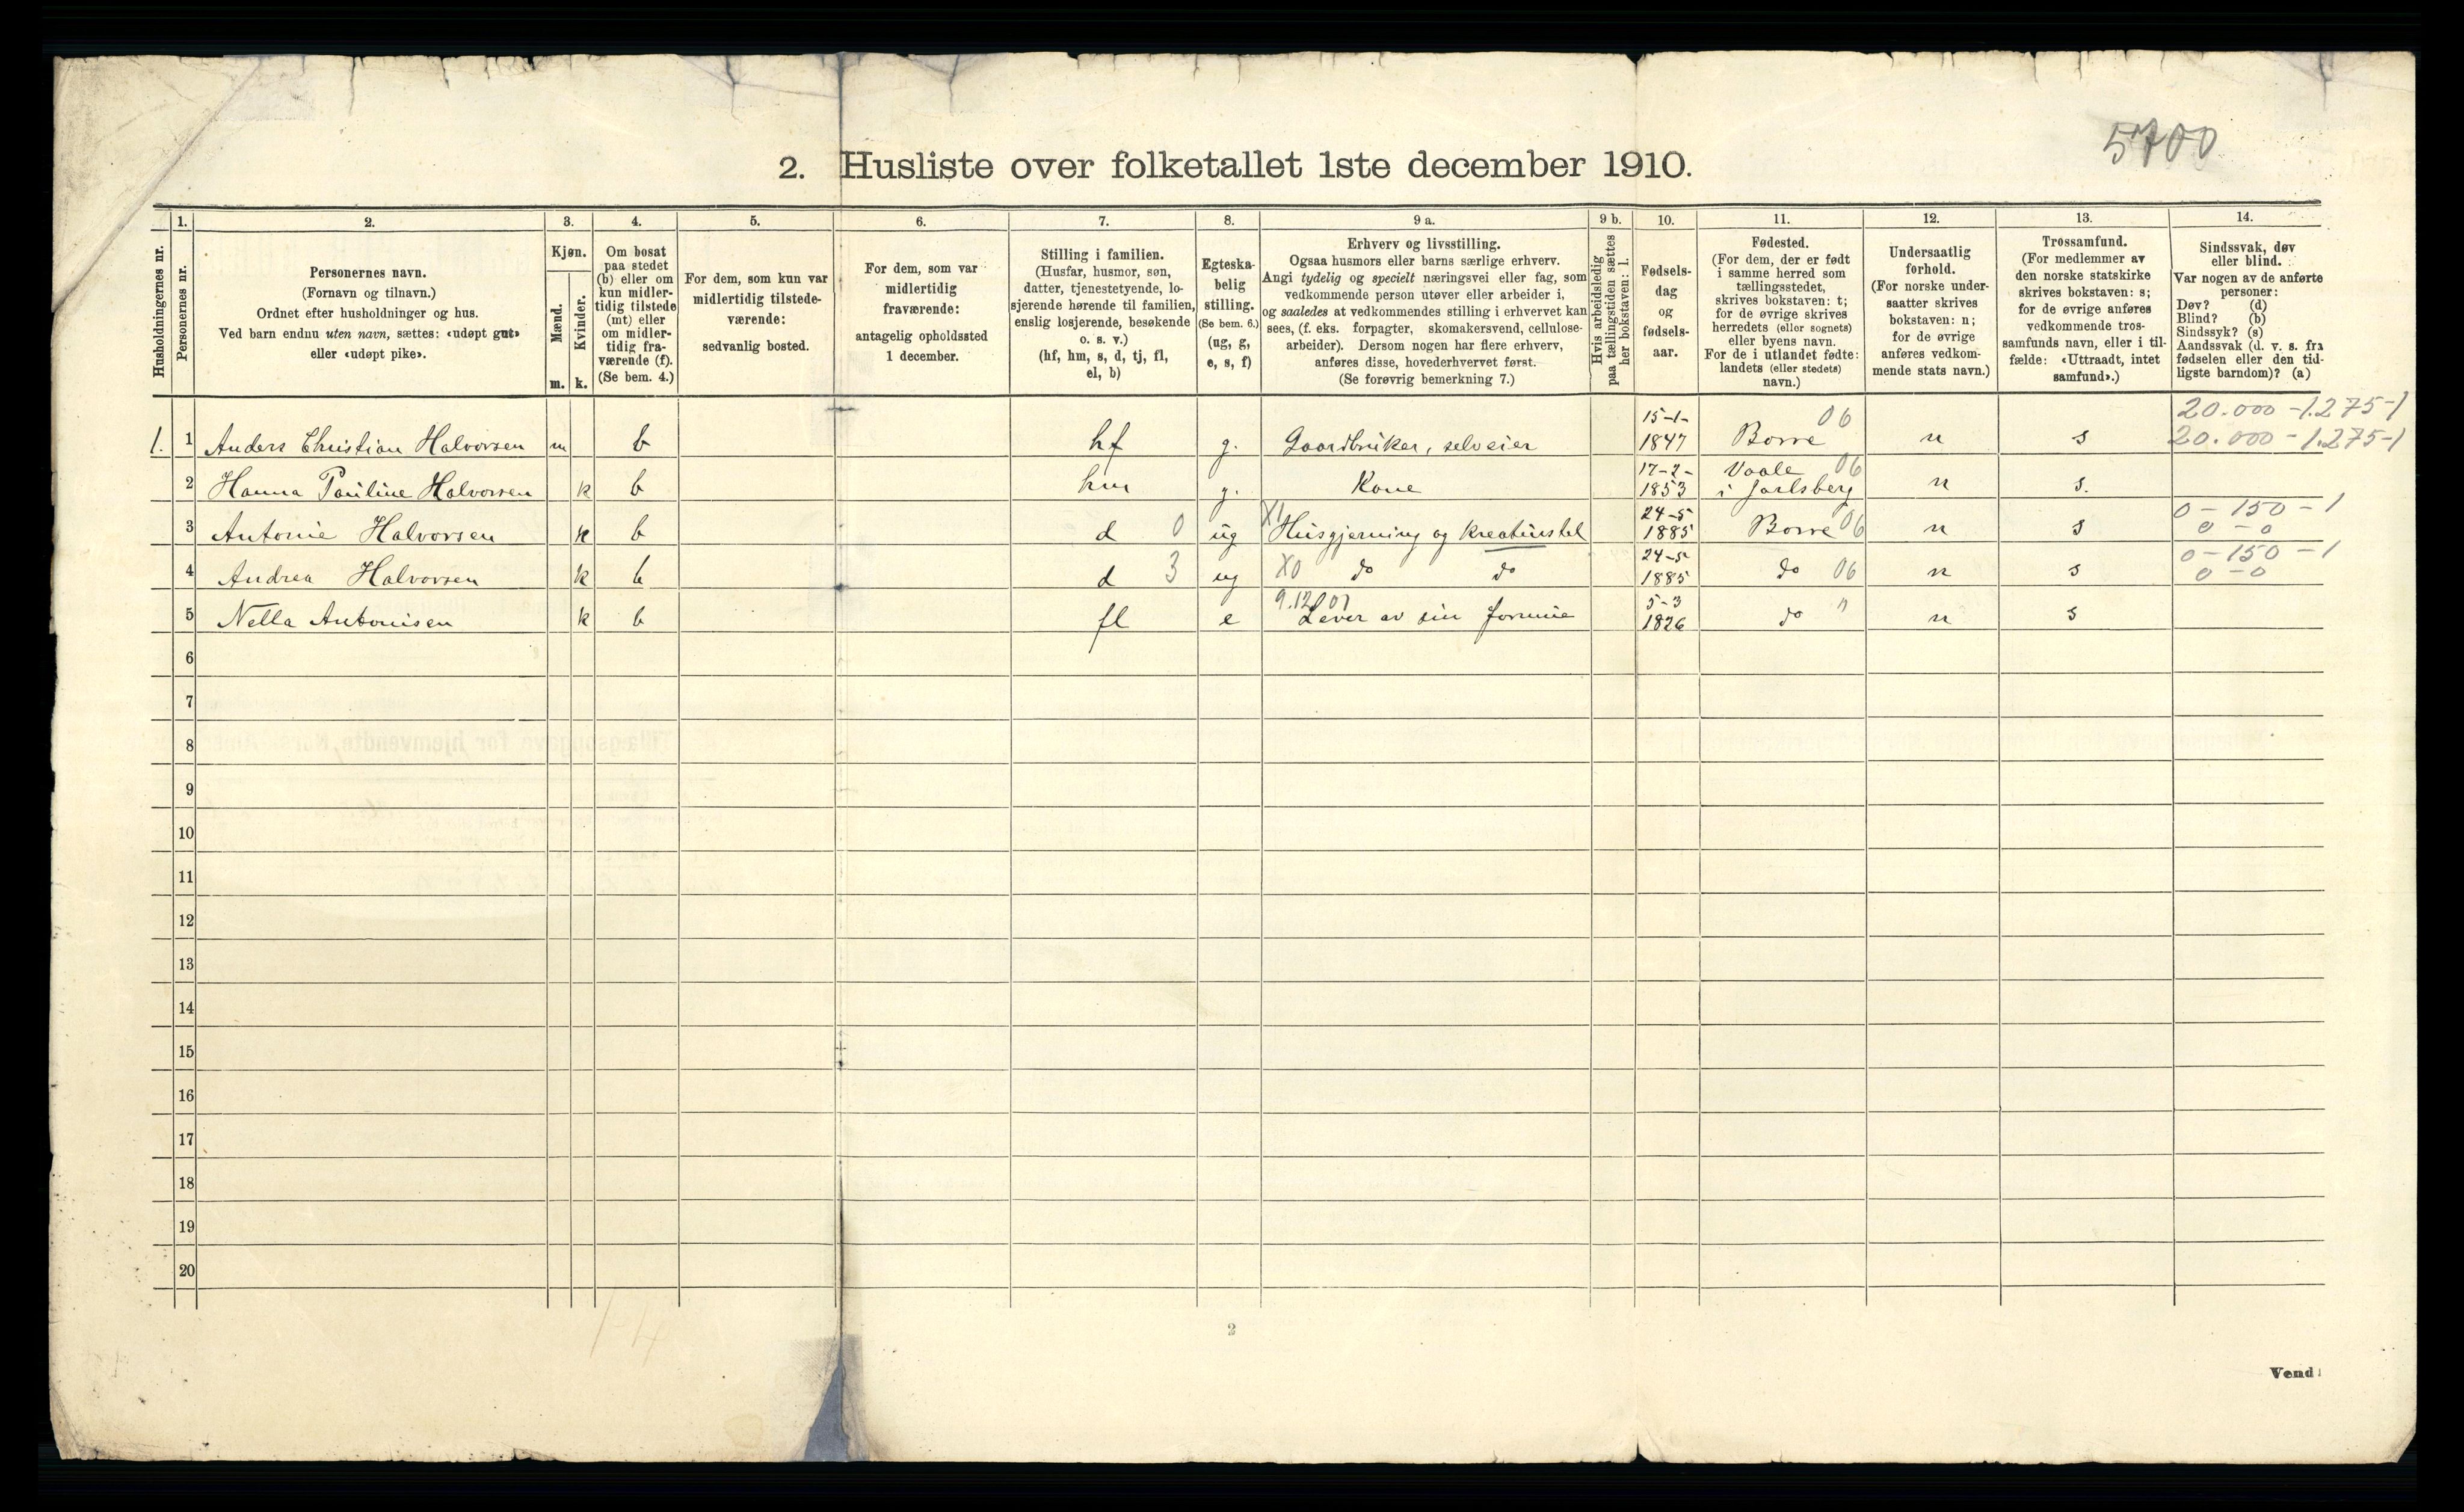 5700
2. Husliste over folketallet 1ste december 1910.
Husholdningernes nr.
1.
Personernes nr.
2.
Personernes navn.
(Fornavn og tilnavn.)
Ordnet efter husholdninger og hus.
Ved barn endnu uten navn, sættes: «udøpt gut»
eller «udøpt pike».
3.
Kjøn.
Mænd.
Kvinder.
m. k.
4.
Om bosat
paa stedet
(b) eller om
kun midler-
tidig tilstede
(mt) eller
om midler-
tidig fra-
værende (f).
(Se bem. 4.)
5.
For dem, som kun var
midlertidig tilstede-
værende:
sedvanlig bosted.
6.
For dem, som var
midlertidig
fraværende:
antagelig opholdssted
1 december.
7.
Stilling i familien.
(Husfar, husmor, søn,
datter, tjenestetyende, lo-
sjerende hørende til familien,
enslig losjerende, besøkende
o. s. v.)
(hf, hm, s, d, tj, fl,
el, b)
8.
Egteska-
belig
stilling.
(Se bem. 6.)
(ug, g,
e, s, f)
9 a.
Erhverv og livsstilling.
Ogsaa husmors eller barns særlige erhverv.
Angi tydelig og specielt næringsvei eller fag, som
vedkommende person utøver eller arbeider i,
og saaledes at vedkommendes stilling i erhvervet kan
sees, (f. eks. forpagter, skomakersvend, cellulose-
arbeider). Dersom nogen har flere erhverv,
anføres disse, hovederhvervet først.
(Se forøvrig bemerkning 7.)
9 b.
Hvis arbeidsledig
paa tællingstiden sættes
her bokstaven: l.
10.
Fødsels-
dag
og
fødsels-
aar.
11.
Fødested.
(For dem, der er født
i samme herred som
tællingsstedet,
skrives bokstaven: t;
for de øvrige skrives
herredets (eller sognets)
eller byens navn.
For de i utlandet fødte:
landets (eller stedets)
navn.)
12.
Undersaatlig
forhold.
(For norske under-
saatter skrives
bokstaven: n;
for de øvrige
anføres vedkom-
mende stats navn.)
13.
Trossamfund.
(For medlemmer av
den norske statskirke
skrives bokstaven: s;
for de øvrige anføres
vedkommende tros-
samfunds navn, eller i til-
fælde: «Uttraadt, intet
samfund».)
14.
Sindssvak, døv
eller blind.
Var nogen av de anførte
personer:
Døv? (d)
Blind? (b)
Sindssyk? (s)
Aandssvak (d. v. s. fra
fødselen eller den tid-
ligste barndom)? (a)
15-1- 06 20.000-1.275-1
1. 1 Anders Christian Halvorsen m b hf g. Gaardbruker, selveier 1847 Borre n s 20.000-1.275-1
17-2- Vaale 06
2 Hanna Pauline Halvorsen k b hm g. Kone 1853 i Jarlsberg n s.
X1 24-5 0-150-1
3 Antonie Halvorsen k b d 0 ug Husgjerning og kreaturstel 1885 Borre 06 n s 0-0
24-5 0-150-1
4 Andrea Halvorsen k b d 3 ug X0 do do 1885 do 06 n s 0-0
9.12.07 5-3
5 Nella Antonisen k b fl e Lever av sin formue 1826 do " n s
6
7
8
9
10
11
12
13
14
15
16
17
18
19
20
1-4
2
Vend!